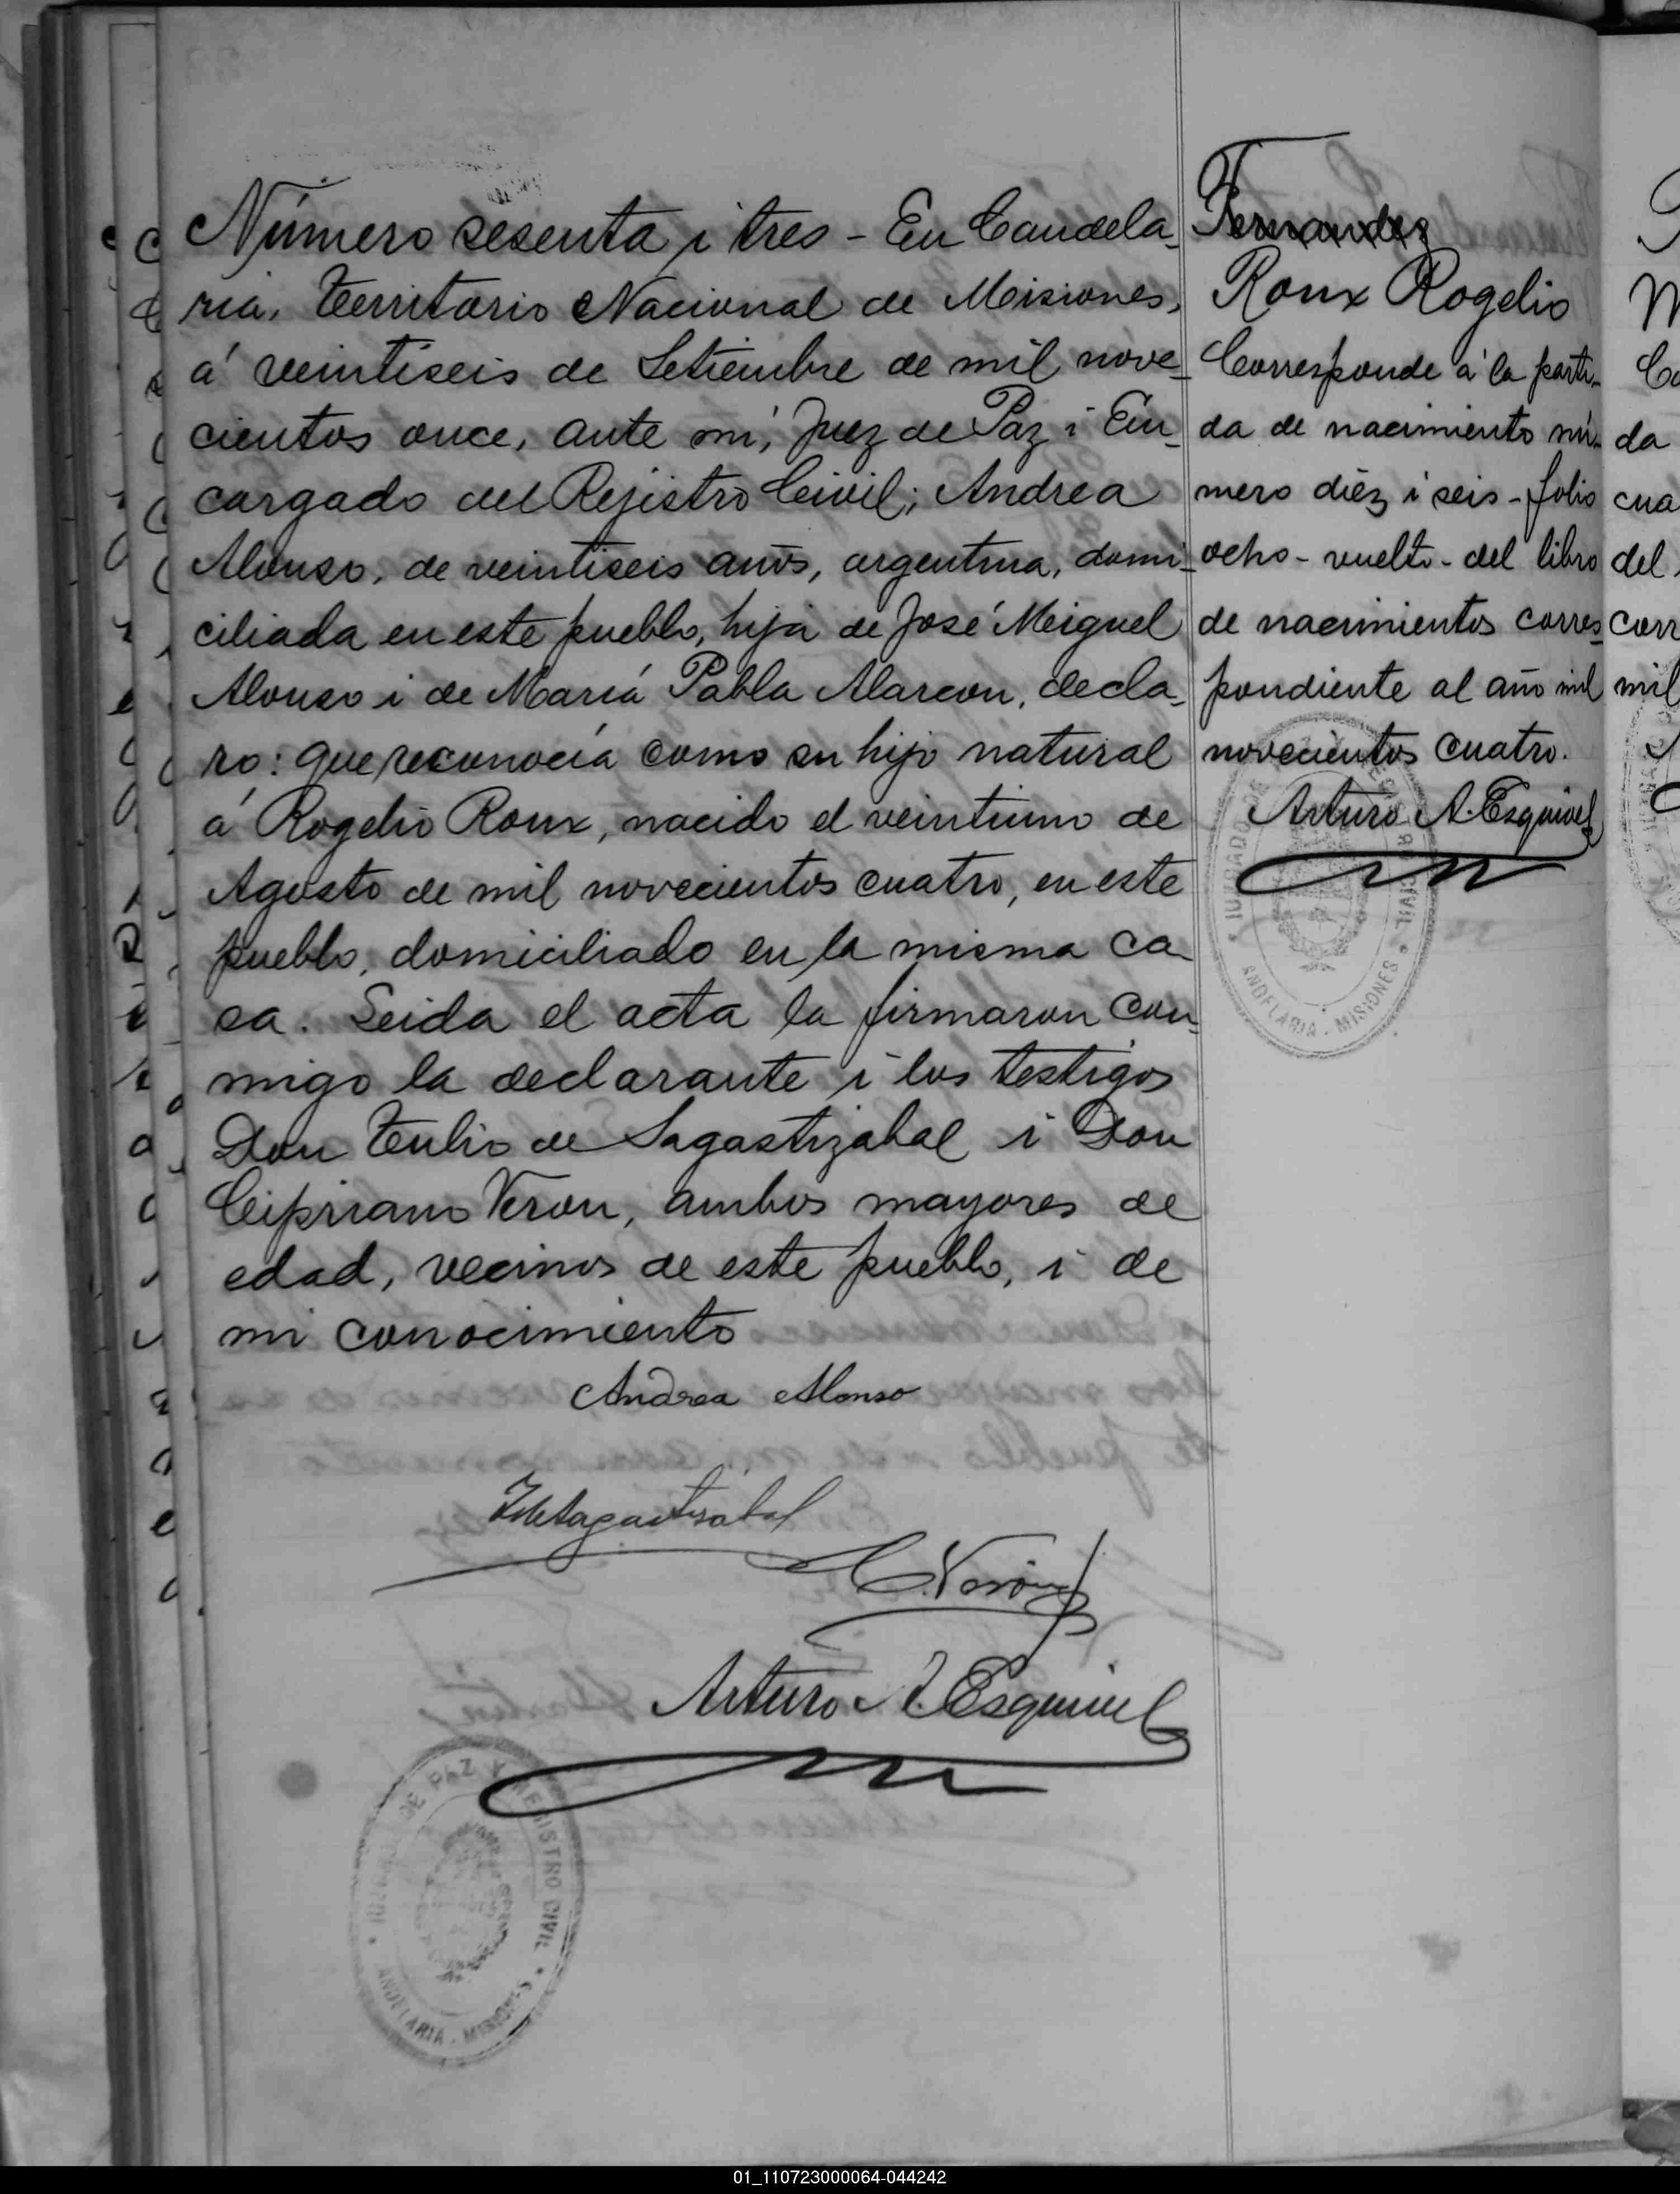 Número sesenta i tres - En Candela-
ria, Territorio Nacional de Misiones,
á veintiseis de Setiembre de mil nove-
cientos once, ante mí, Juez de Paz i En-
cargado del Rejistro Civil; Andrea
Alonso, de veintiseis años, argentina, domi-
ciliada en este pueblo, hija de José Miguel
Alonso i de María Pabla Alarcon, decla-
ro: que reconocía como su hijo natural
á Rogelio Roux, nacido el veintiuno de
Agosto de mil novecientos cuatro, en este
pueblo, domiciliado en la misma ca-
sa. Leida el acta la firmaron con-
migo la declarante i los testigos
Don Tulio de Sagastizabal i Don
Cipriano Veron, ambos mayores de
edad, vecinos de este pueblo, i de
mi conocimiento
Andrea Alonso
TdeSagastizabal
C. Verón
Arturo A. Esquivel
DE PAZ Y REGISTRO CIVIL
CANDELARIA - MISIONES
Fernandez
Roux Rogelio
Corresponde á la parti-
da de nacimiento nú-
mero diéz i seis - folio
ocho - vuelto - del libro
de nacimientos corres-
pondiente al año mil
novecientos cuatro.
Arturo A. Esquivel
JUZGADO DE CIVIL
CANDELARIA - MISIONES
da
cua
del
corr
mil
01_110723000064-044242